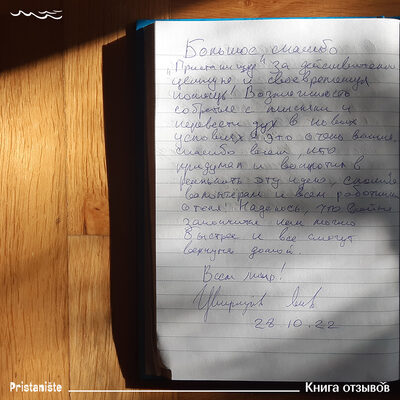 Большое спасибо
"Пристанищу" за действительно
ценную и своевременную
помощь! Возможность
собраться с мыслями и
перевести дух в новых
условиях - это очень важно.
Спасибо всем, кто
придумал и воплотил в
реальность эту идею, спасибо
волонтёрам и всем работникам
отеля. Надеюсь, что война
закончится как можно
быстрее и все смогут
вернуться домой.
Всем мира!
28.10.22
Pristanište
Книга отзывов